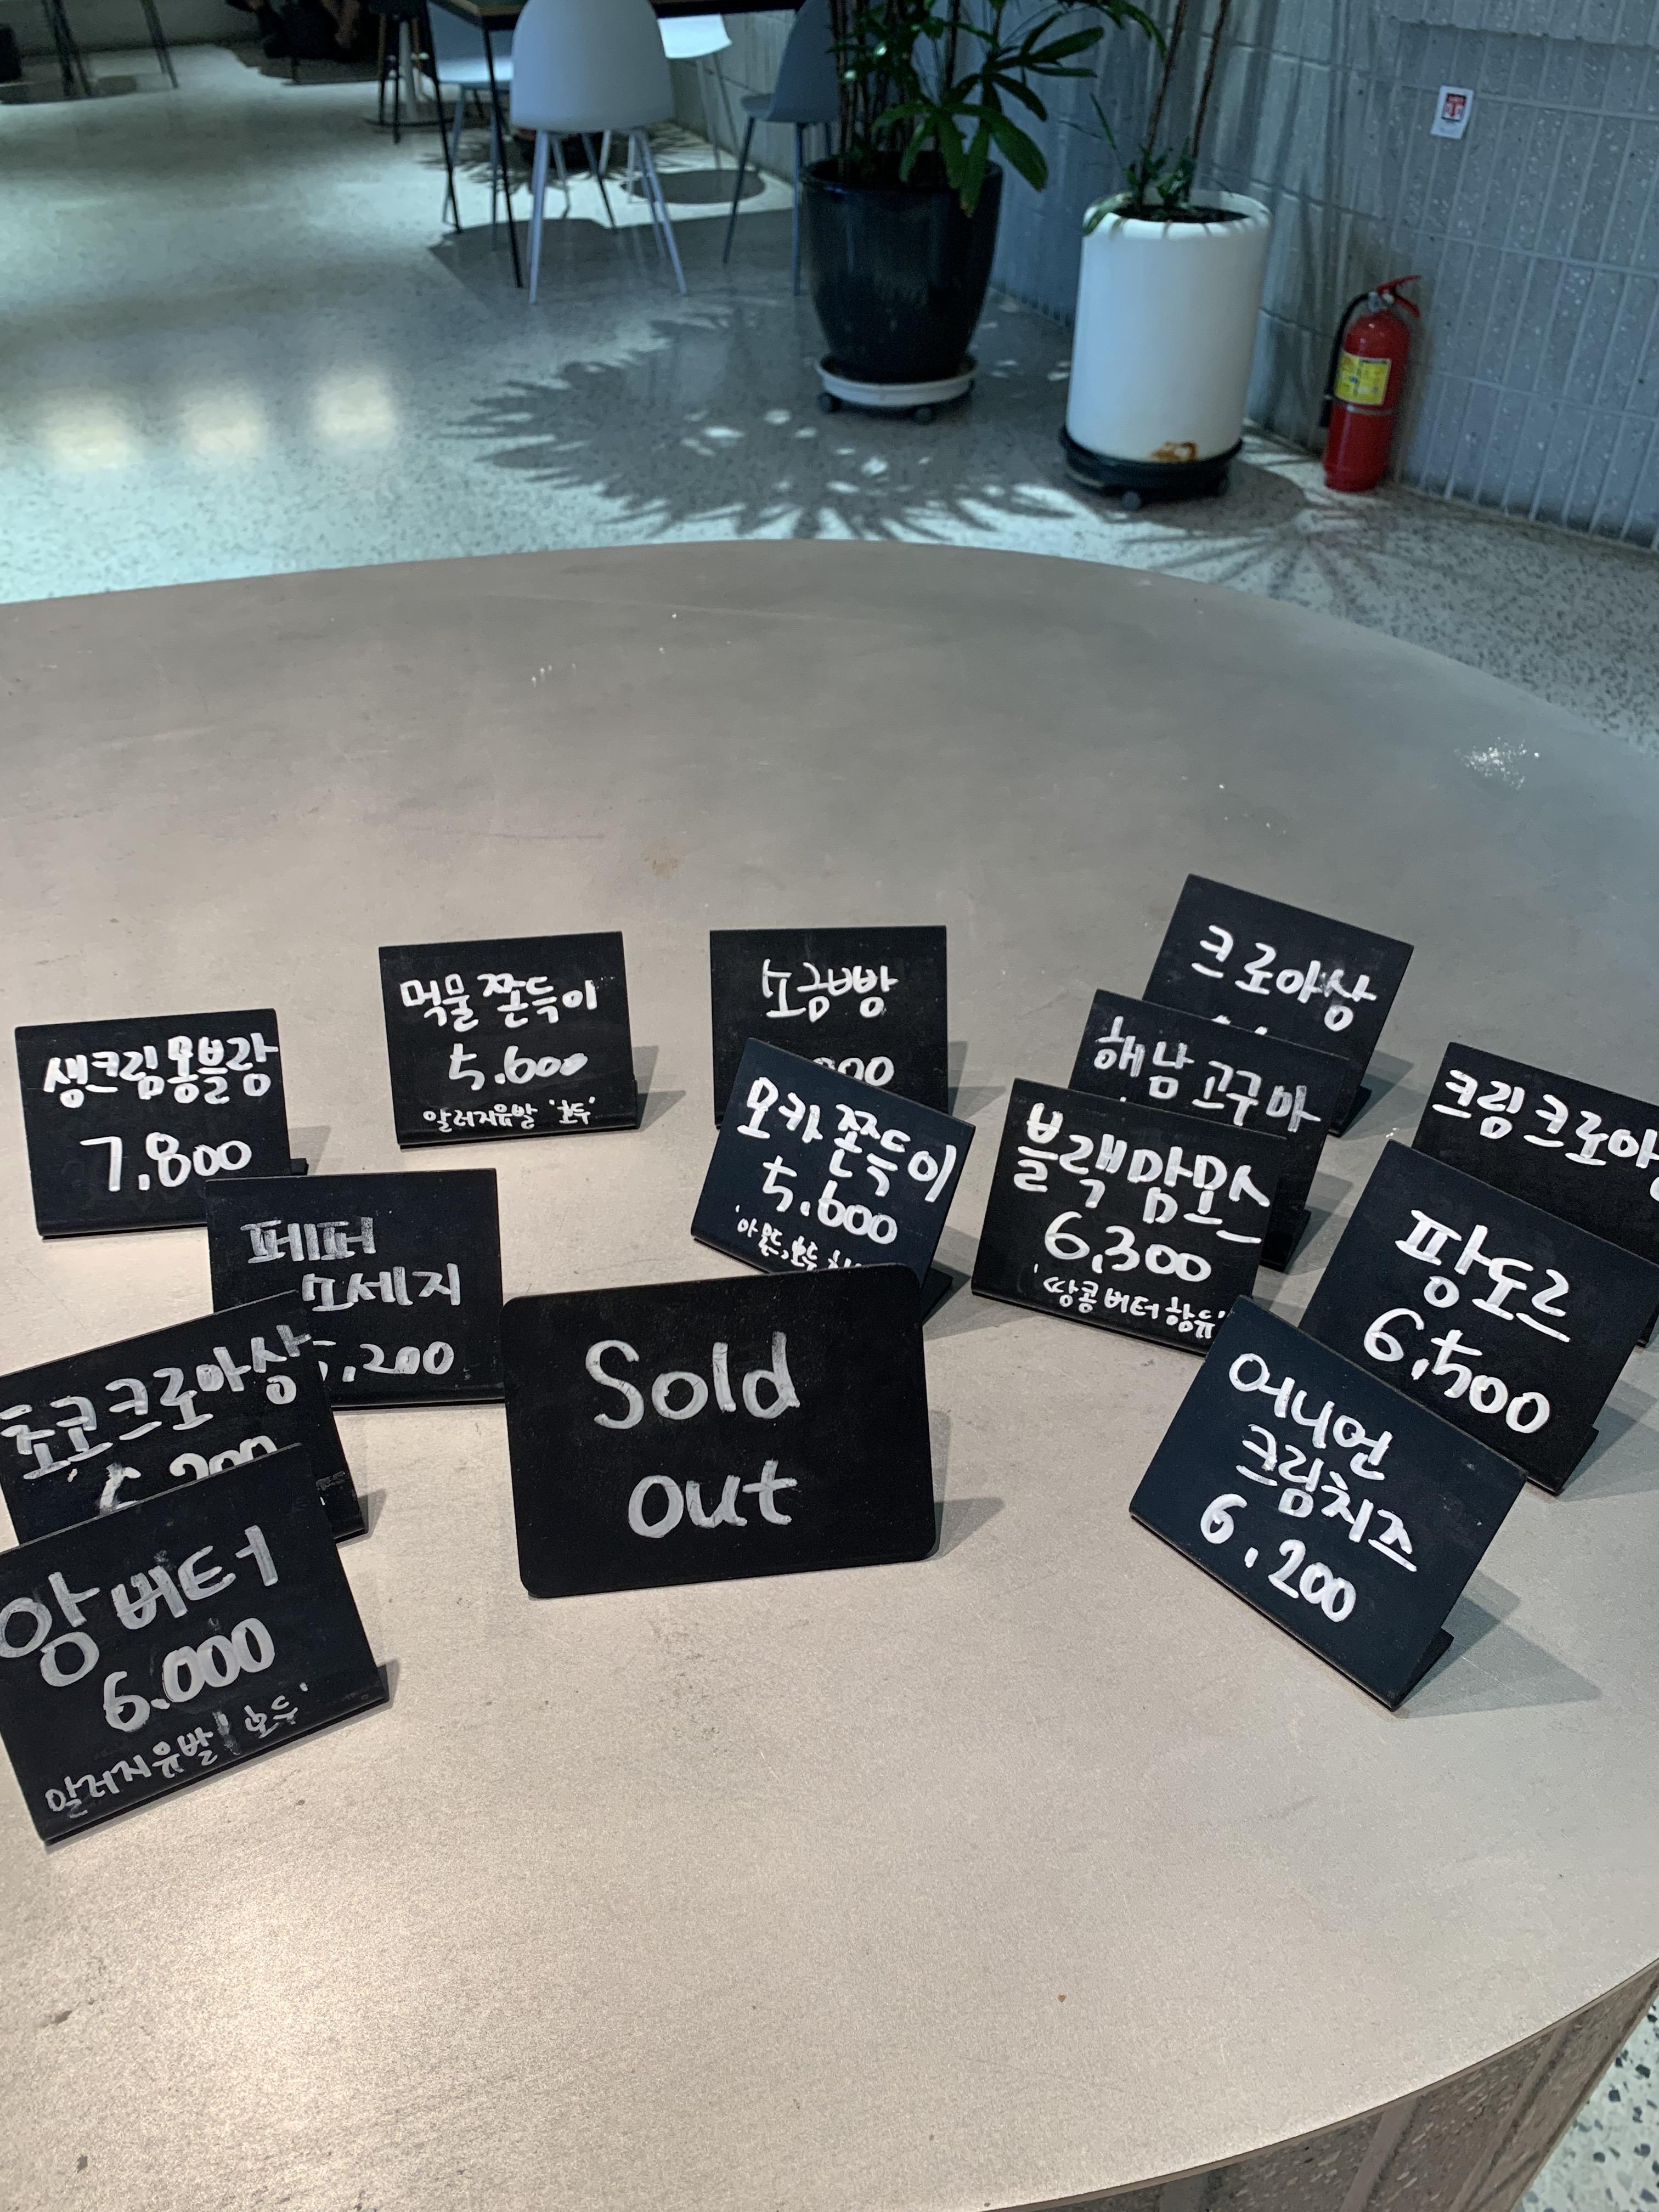 생크림몽블랑
7.800
먹물쫀득이
5.600
알러지유발 '호두'
소금빵
크로아상
해남고구마
크림크로아상
모카쫀득이
5.600
'아몬드,호두
블랙맘모스
6,300
'땅콩버터함유'
팡도르
6,500
페퍼
소세지
,200
초코크로아상
200
Sold
out
어니언
크림치즈
6.200
앙버터
6.000
알러지유발 '호두'